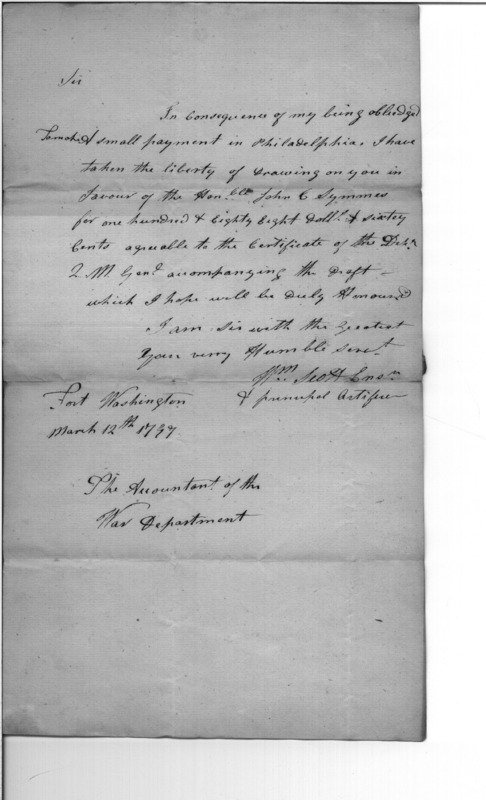 Sir
In Consequence of my being obliedged
to make a small payment in Philadelphia, I have
taken the liberty of Drawing on you in
favour of the Hon.ble John C Symmes
for one hundred & Eighty Eight doll.s & sixty
Cents agreable to the Certificate of the
Q. M. Gen.l accompanying the draft –
which I hope will be Duly Honoured
I am Sir with the
Your very Humble Serv.t
Wm Scott Ensn
& principal Artificer
Fort Washington
March 12th 1797
The Accountant of the
War Department